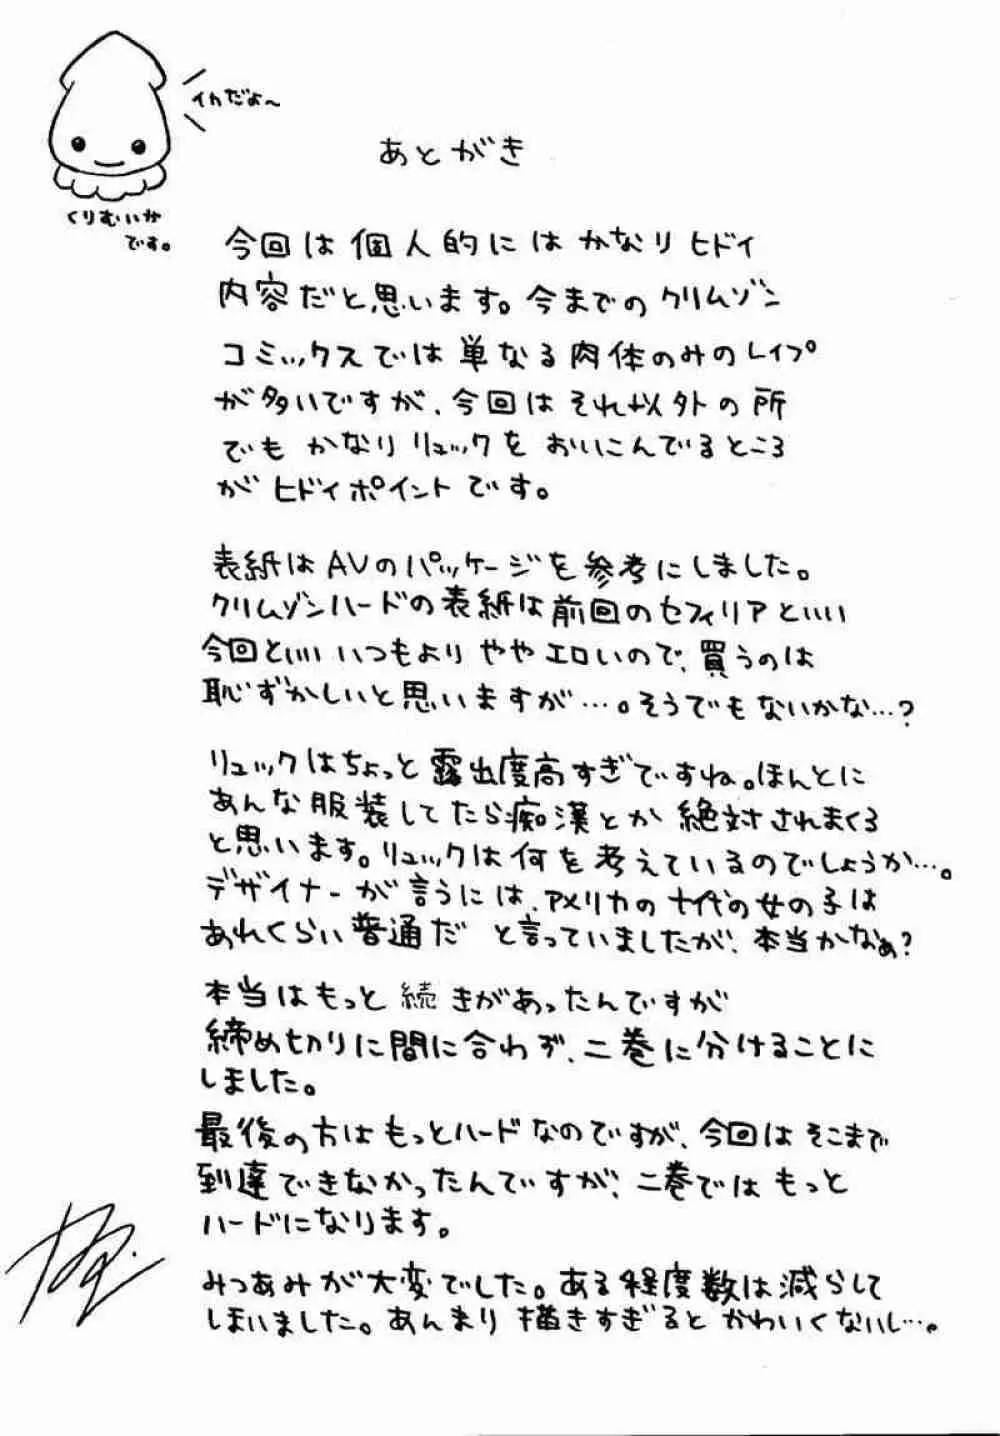 イカだよ～
くりむいか
です。
あとがき
今回は個人的にはかなりヒドイ
内容だと思います。今までのクリムゾン
コミックスでは単なる肉体のみのレイプ
が多いですが、今回はそれ以外の所
でもかなりリュックをおいこんでるところ
がヒドイポイントです。
表紙はAVのパッケージを参考にしました。
クリムゾンハードの表紙は前回のセフィリアといい
今回といいいつもよりややエロいので、買うのは
恥ずかしいと思いますが…。そうでもないかな…?
リュックはちょっと露出度高すぎですね。ほんとに
あんな服装してたら痴漢とか絶対されまくる
と思います。リュックは何を考えているのでしょうか…。
デザイナーが言うには、アメリカの十代の女の子は
あれくらい普通だと言っていましたが、本当かなぁ?
本当はもっと続きがあったんですが
締め切りに間に合わず、二巻に分けることに
しました。
最後の方はもっとハードなのですが、今回はそこまで
到達できなかったんですが、二巻ではもっと
ハードになります。
みつあみが大変でした。ある程度数は減らして
しまいました。あんまり描きすぎるとかわいくないし…。